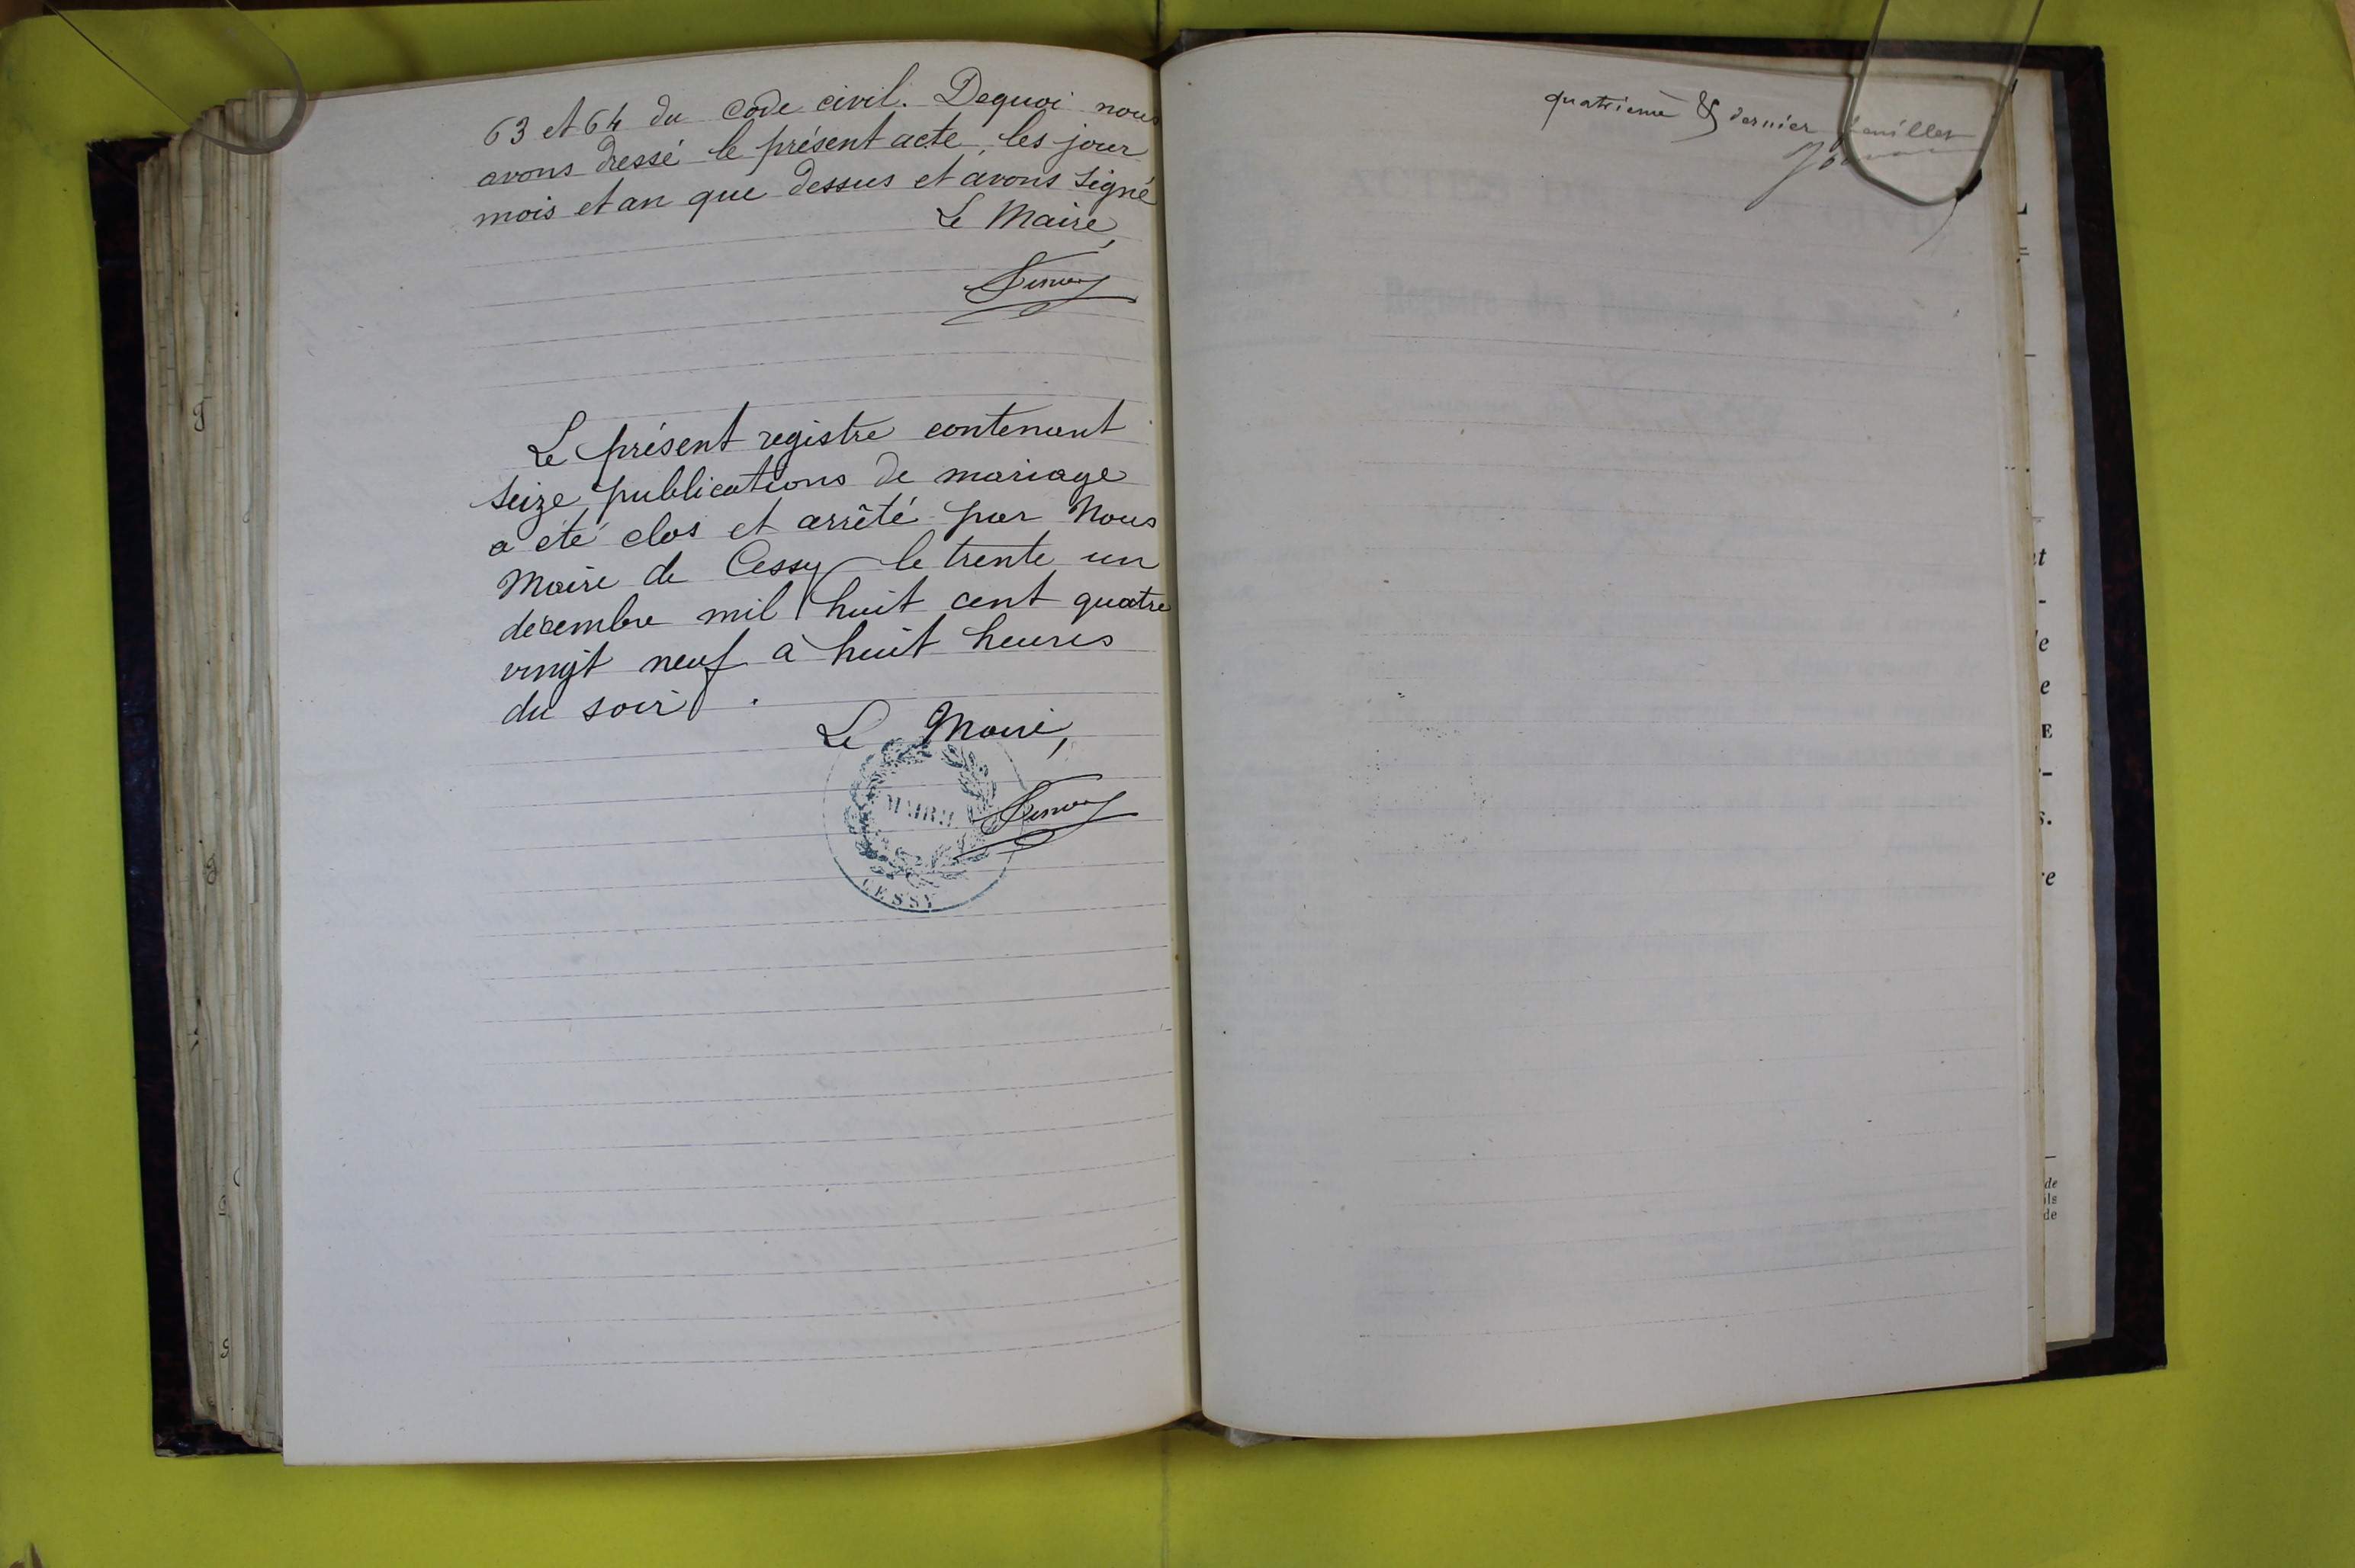 63 et 64 du Code civil. Dequoi nous
avons dressé le présent acte, les jour
mois et an que dessus et avons signé
Le Maire,
Le présent registre contenant
seize publications de mariage
a été clos et arrêté par Nous
Maire de Cessy le trente un
décembre mil huit cent quatre
vingt neuf à huit heures
du soir.
Le Maire,
MAIRIE
CESSY
quatrième & dernier feuillet